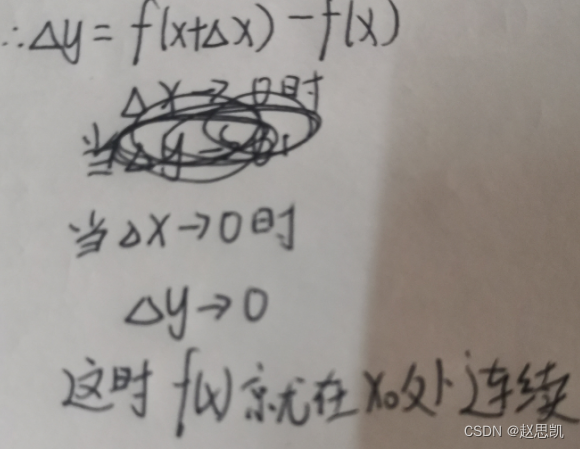 ∴Δy = f(x+Δx) - f(x)
Δx→0时
当Δy→0
当Δx→0时
Δy→0
这时 f(x) 就在 x₀处连续
CSDN @赵思凯